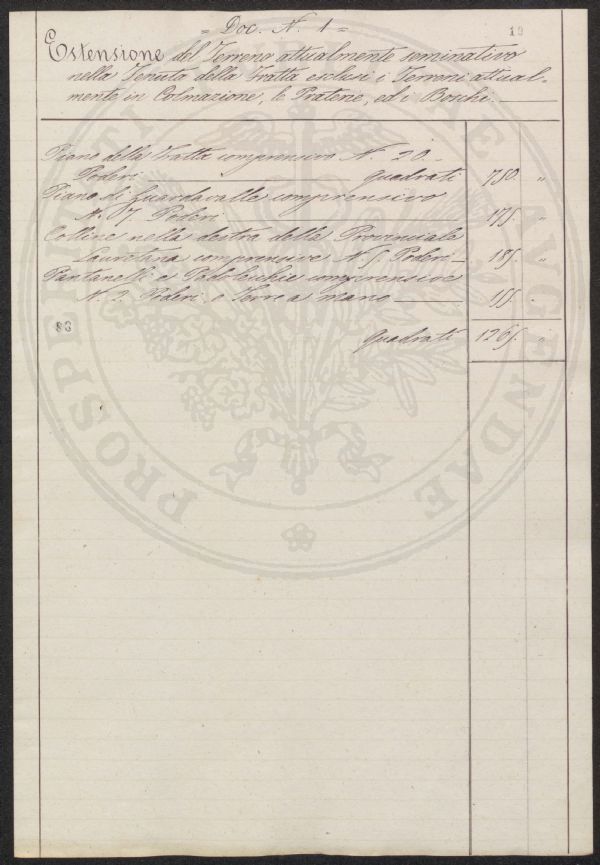 = Doc. N. 1 =
19
Estensione del Terreno attualmente seminativo
nella Tenuta della Fratta esclusi i Terreni attual-
mente in Colmazione, le Praterie, ed i Boschi.
Piano della Fratta comprensivo N. 20.
Poderi Quadrati 750. "
Piano di Guardavalle comprensivo
N. 7 Poderi 175. "
Colline nella destra della Provinciale
Lauretana comprensive N. 5. Poderi 185. "
Pantanelli e comprensive
N. 2. Poderi e Terre a mano 155. "
83
Quadrati 1265. "
PROSPERITATI PUBLICAE AUGENDAE